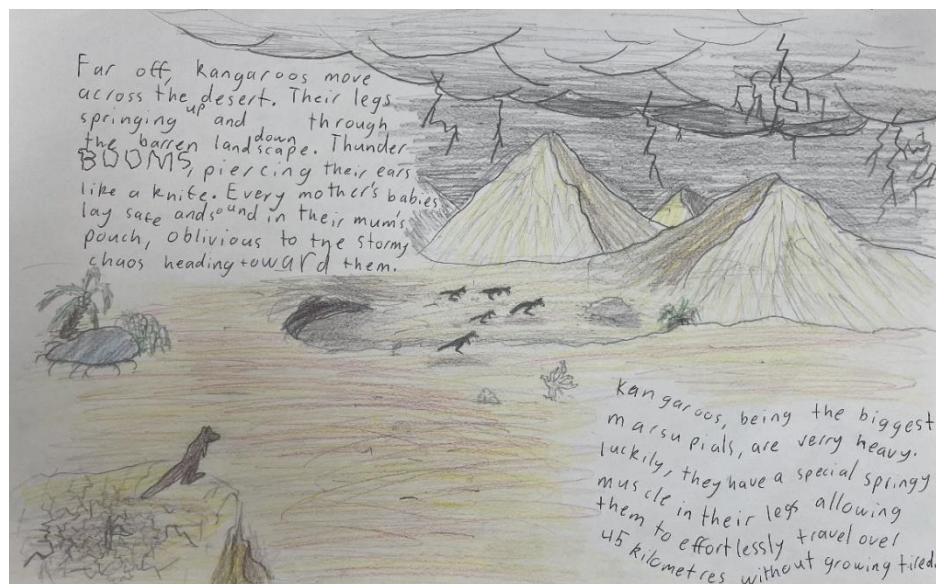 Far off, kangaroos move
across the desert. Their legs
springing up and down through
the barren landscape. Thunder
BOOMS, piercing their ears
like a knife. Every mother's babies
lay safe and sound in their mum's
pouch, oblivious to the stormy
chaos heading toward them.
Kangaroos, being the biggest
marsupials, are verry heavy.
luckily, they have a special springy
muscle in their legs allowing
them to effortlessly travel over
45 kilometres without growing tired.